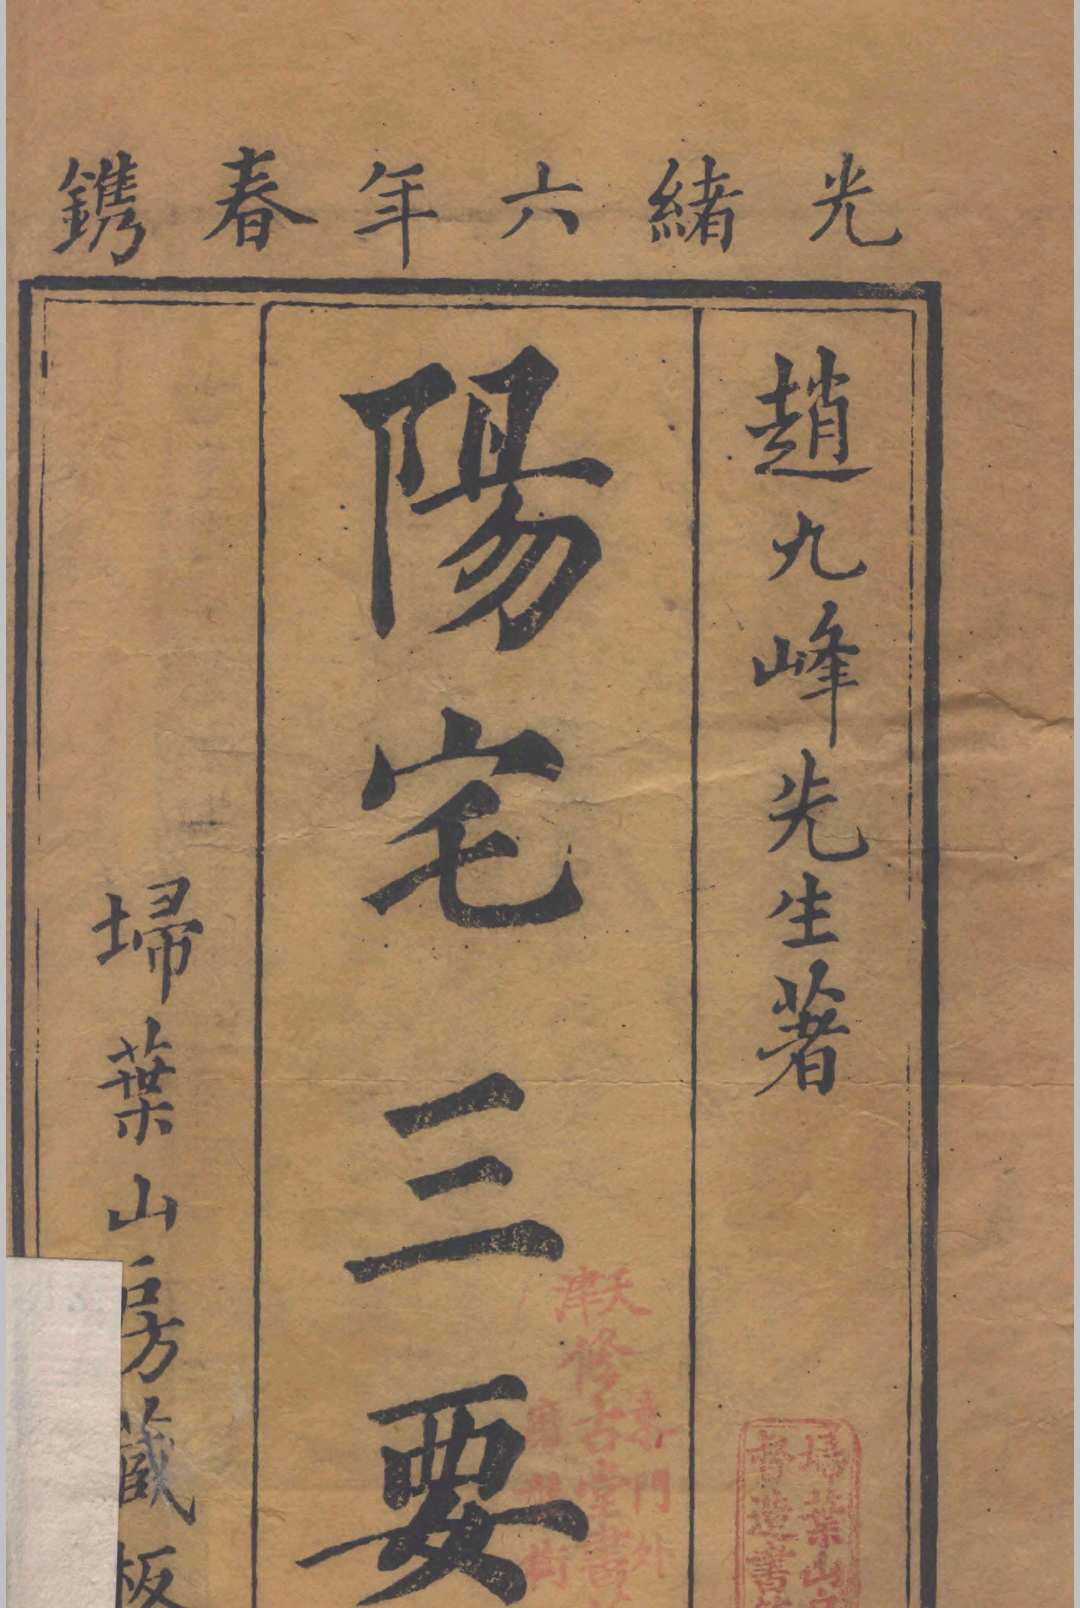 光緒六年春鐫
趙九峰先生著
陽宅三要
埽葉山房藏板
天津
修古堂書
門外
街
埽葉山
督造書